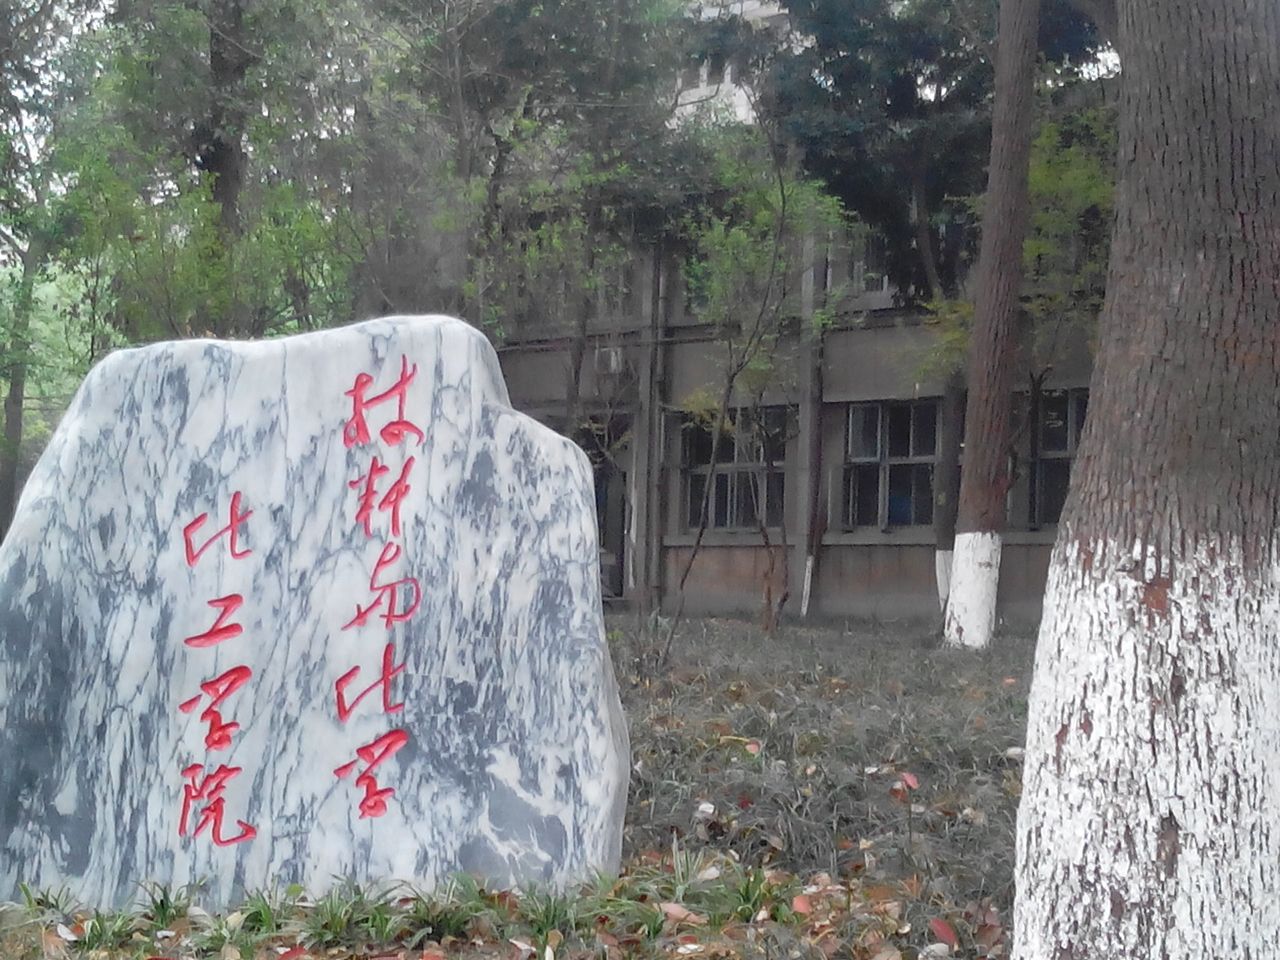 材料与化学
化工学院